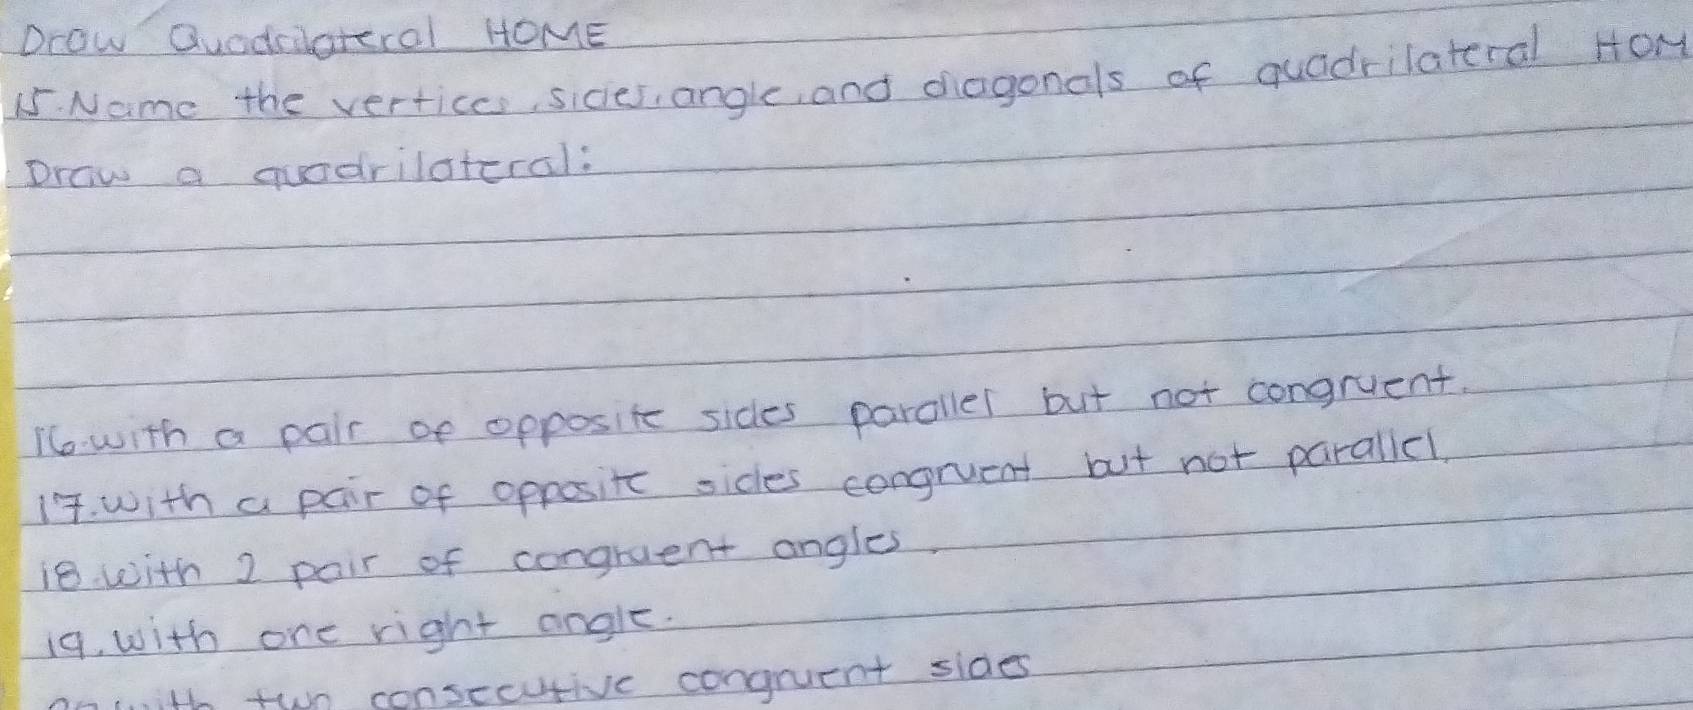 Draw Quadrilateral HOME
15. Name the vertices, sides, angle, and diagonals of quadrilateral HOM
Draw a quadrilateral:
16. with a pair of opposite sides parallel but not congruent.
17. with a pair of opposite sides congruent but not parallel.
18. with 2 pair of congruent angles.
19. with one right angle.
with two consecutive congruent sides